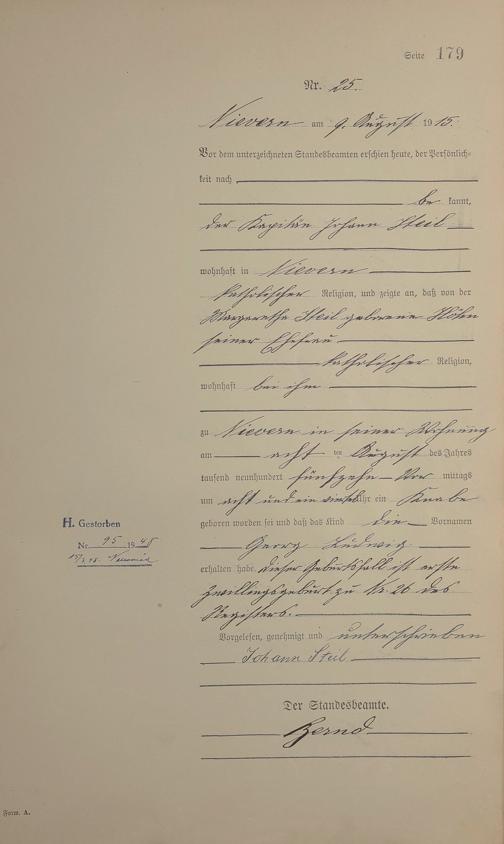 Seite 179
Nr. 25.
Nievern am 9. August 1915.
Vor dem unterzeichneten Standesbeamten erschien heute, der Persönlich-
keit nach
be kannt,
der Kapitän Johann Steil
wohnhaft in Nievern
katholischer Religion, und zeigte an, daß von der
Margaretha Steil geborene Höhn
seiner Ehefrau
katholischer Religion,
wohnhaft bei ihm
zu Nievern in seiner Wohnung
am acht ten August des Jahres
tausend neunhundert fünfzehn Vor mittags
um acht und ein viertel Uhr ein Knabe
geboren worden sei und daß das Kind die Vornamen
Georg Ludwig
erhalten habe. Dieser Geburtsfall ist erste
Zwillingsgeburt zu Nr. 26 des
Registers.
Vorgelesen, genehmigt und unterschrieben
Johann Steil
Der Standesbeamte.
Bernd
H. Gestorben
Nr. 95 1948
Form. A.